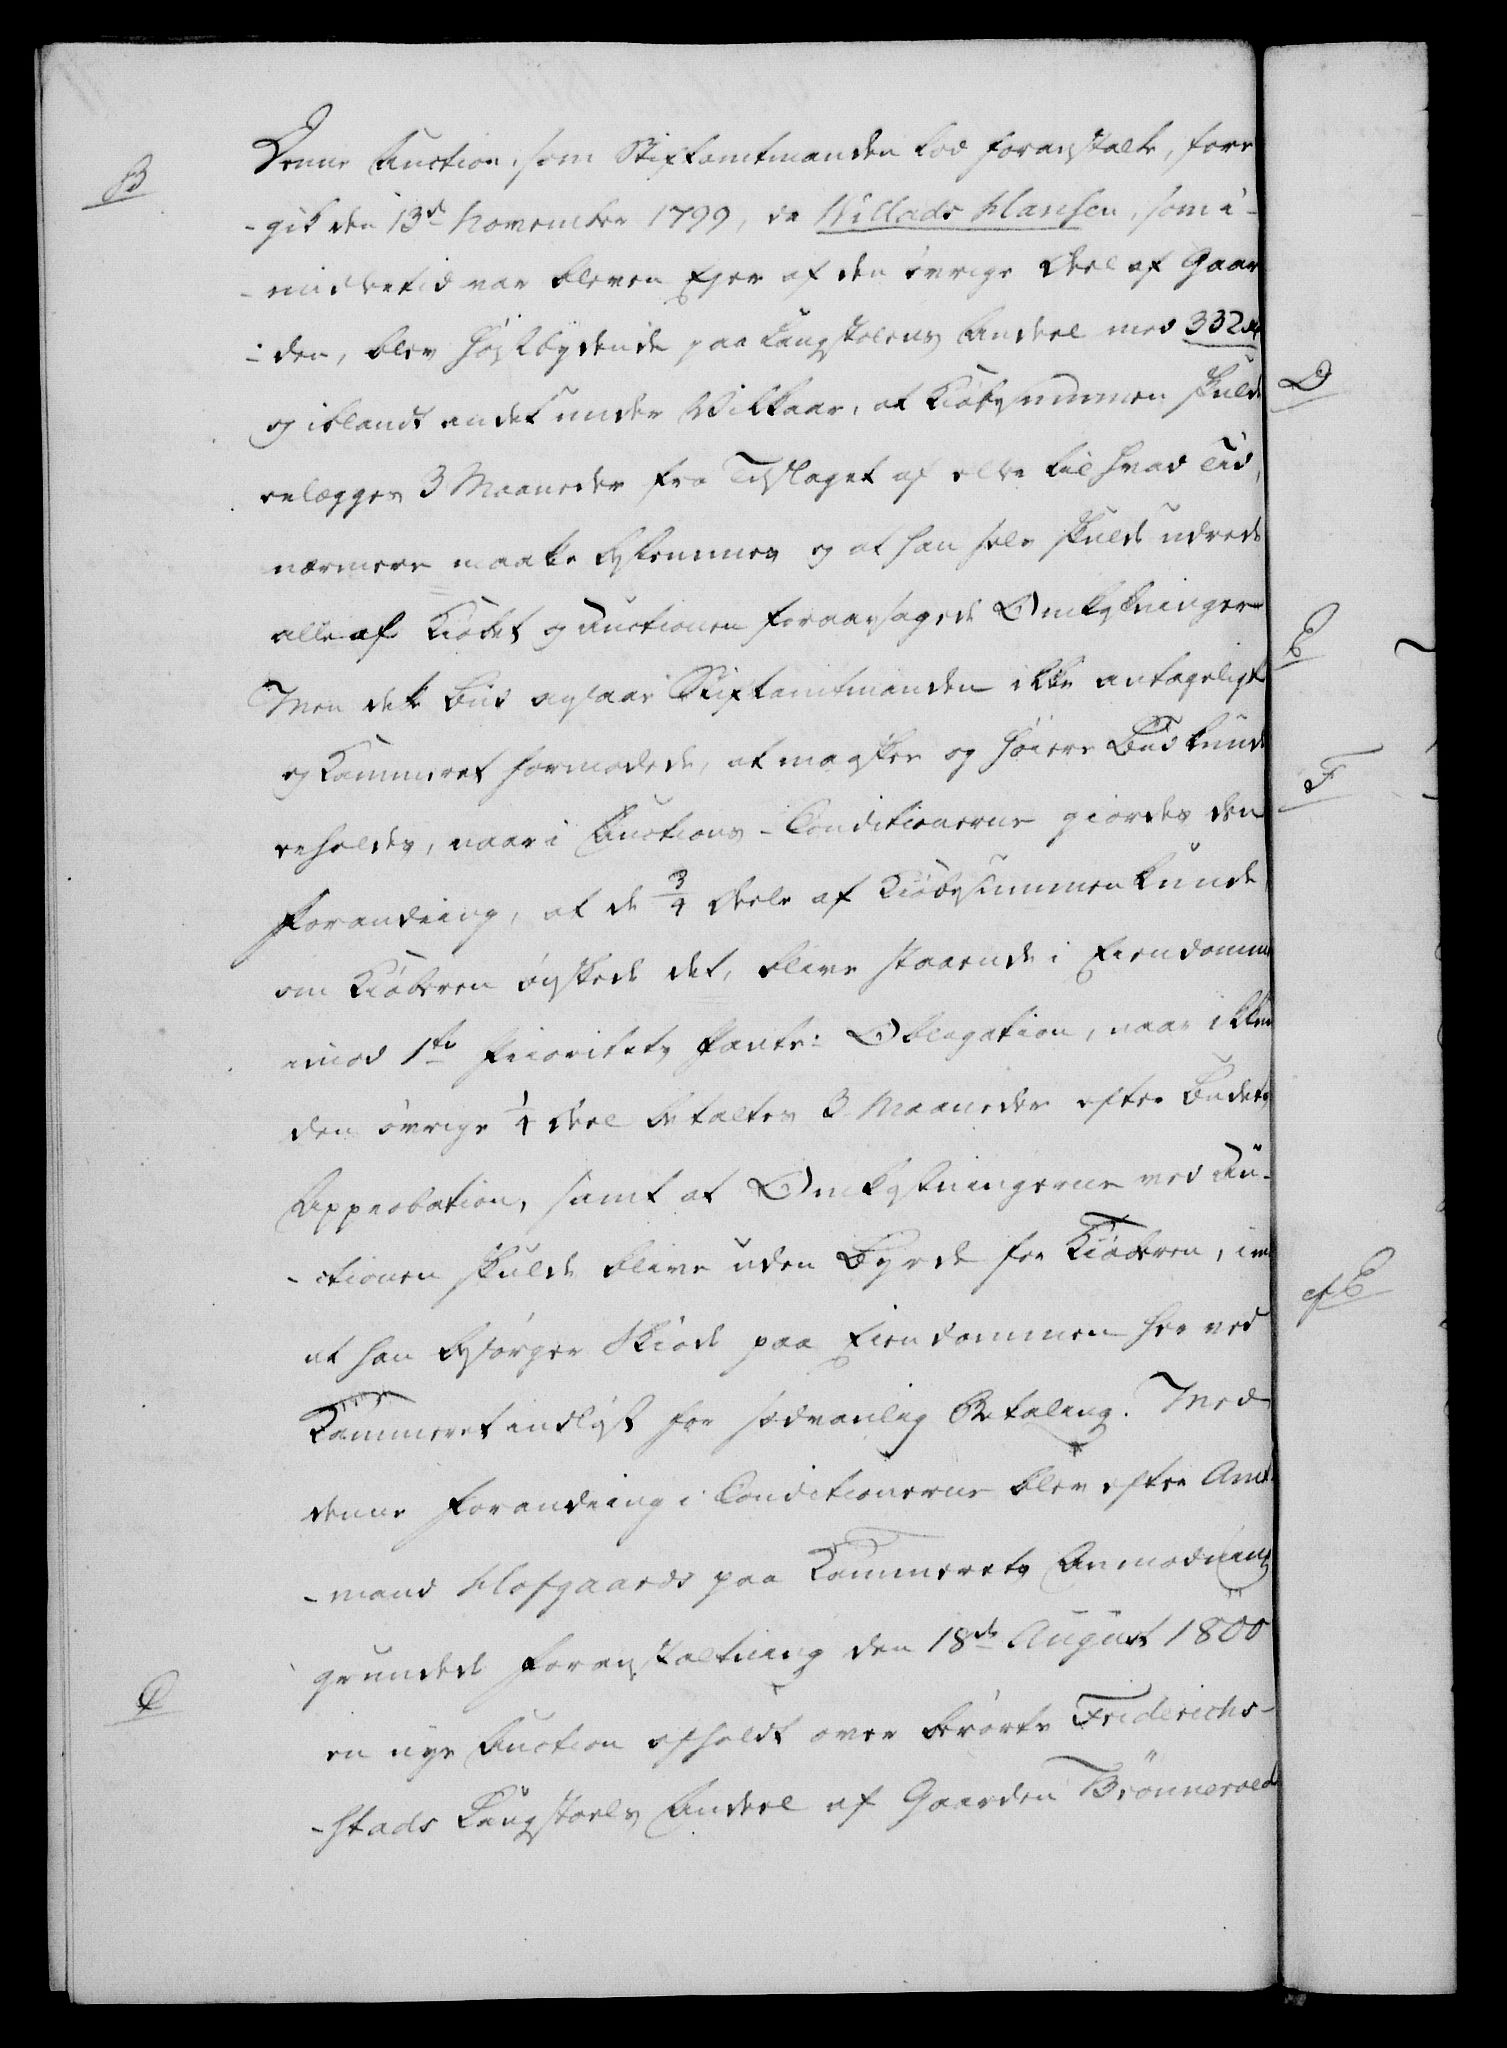 B
Denne Auction, som Stiftamtmanden lod foranstalte, fore
-gik den 13de November 1799, da Willads Hansen, som i-
-midlertid var bleven Ejer af den øvrige Deel af Gaar
-den, blev høistbydende paa Laugstolens Andeel med 332 rd
og iblandt andet under Vilkaar, at Kiøbesummen skulde
erlægges 3 Maaneder fra Tilslaget af eller til hvad Tid,
nærmere maatte bestemmes og at han selv skulde udrede
alle af Kiøbet og Auctionen foraarsagede Omkostninger
Men dette Bud ansaae Stiftamtmanden ikke antageligt
og Kammeret formodede, at maaskee og høiere Bud kunde
erholdes, naar i Auctions-Conditionerne giordes den
Forandring, at de 3/4 Deele af Kiøbesummen kunde,
om Kiøberen ønskede det, blive staaende i Eiendommen
imod 1ste Prioritets Pante-Obligation, naar ikkun
den øvrige 1/4 Deel betaltes 3 Maaneder efter Budets
Approbation, samt at Omkostningerne ved Au-
-ctionen skulde blive uden Byrde for Kiøberen, im
at han besørger Skiøde paa Eiendommen her ved
Kammeret indløst for sædvanlig Betaling. Med
denne Forandring i Conditionerne blev efter Amt
-mand Hofgaards paa Kammerets Anmodning
grundede Foranstaltning den 18de August 1800
C
en nye Auction afholdt over berørte Friderichs-
-stads Laugstoels Andeel af Gaarden Brönneroed
D
E
F
cf E